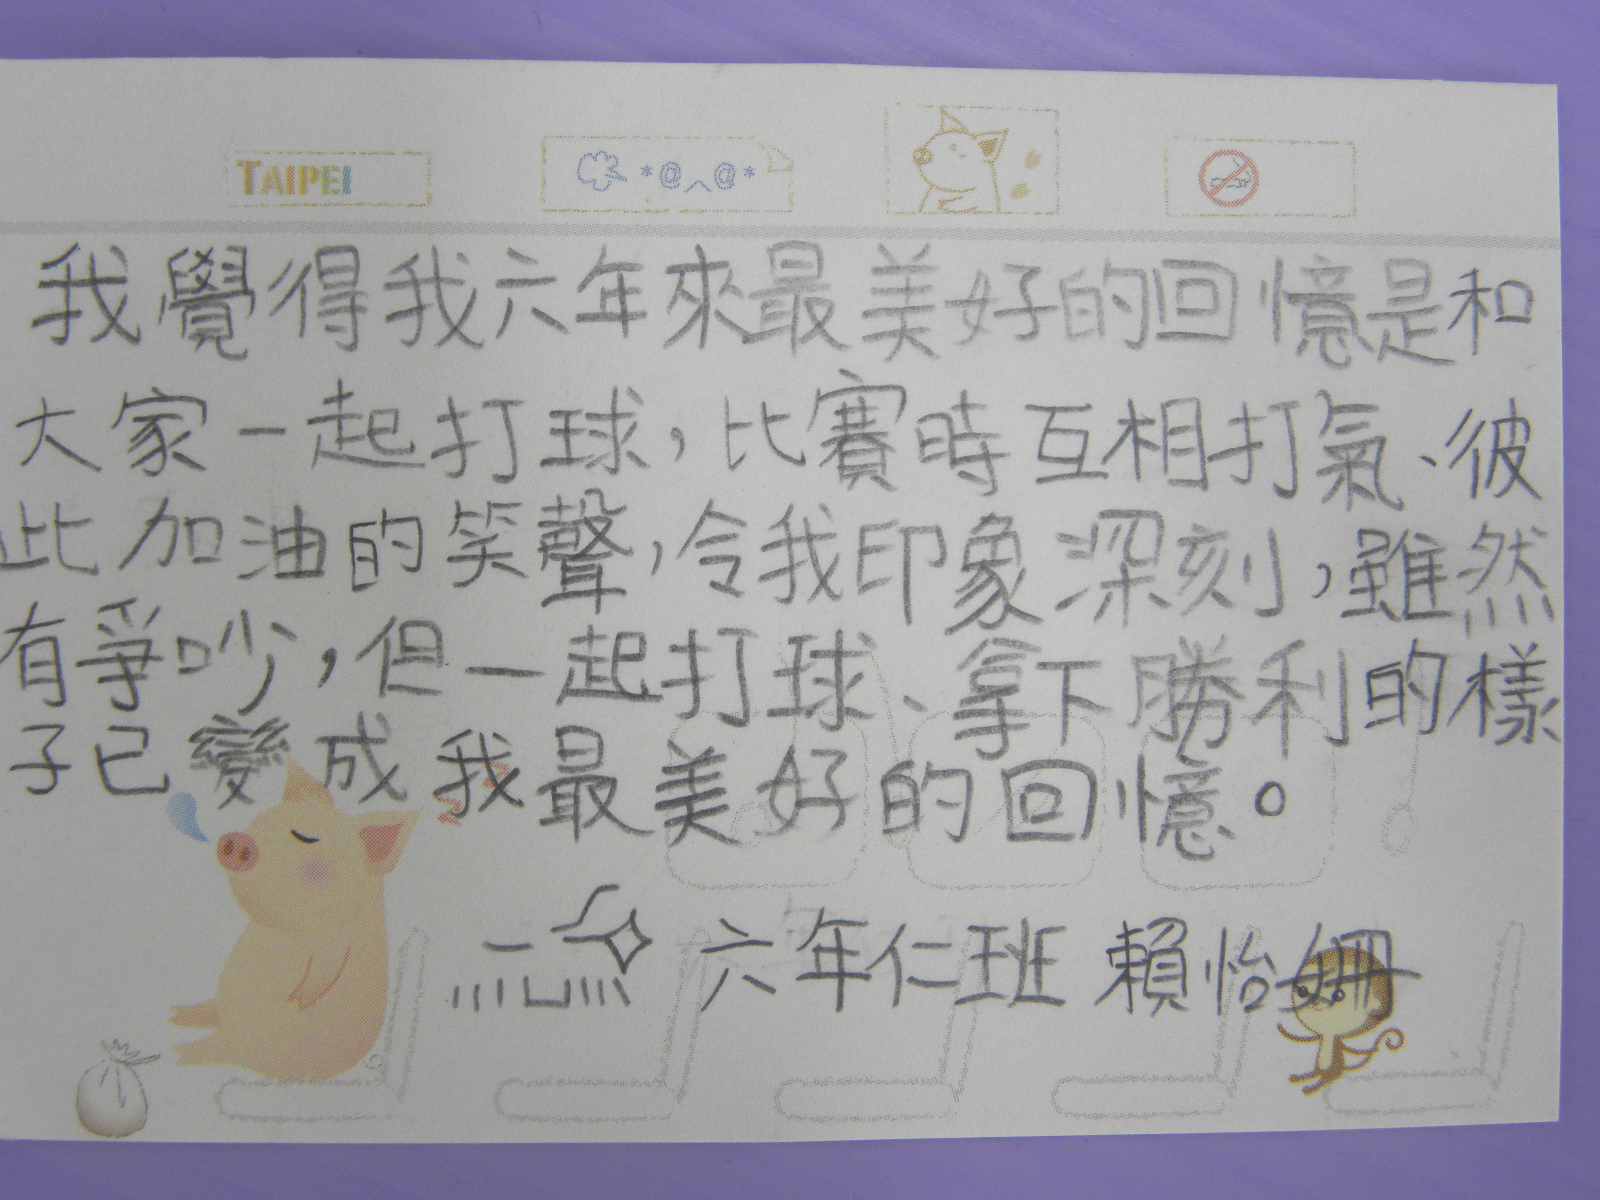 TAIPEI
*@^@*
我覺得我六年來最美好的回憶是和
大家一起打球,比賽時互相打氣、彼
此加油的笑聲,令我印象深刻,雖然
有爭吵,但一起打球、拿下勝利的樣
子已變成我最美好的回憶。
六年仁班 賴怡姍